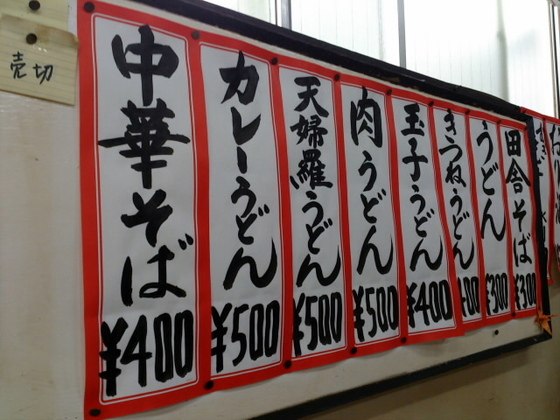 売切
中華そば ¥400
カレーうどん ¥500
天婦羅うどん ¥500
肉うどん ¥500
玉子うどん ¥400
きつねうどん 400
うどん ¥300
田舎そば ¥30